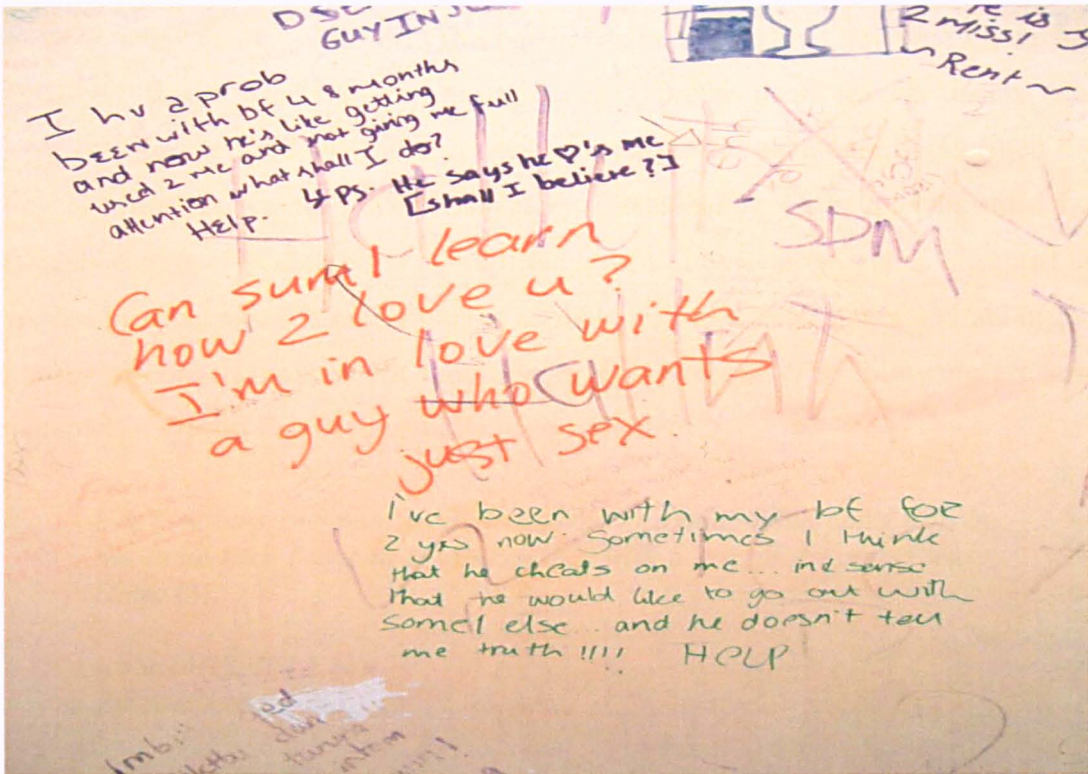 GUY IN
2 miss!
~ Rent ~
I hv a prob
been with bf 4 8 months
and now he's like getting
used 2 me and not giving me full
attention what shall I do?
Help.
↳ PS. He says he ♡'s me
[shall I believe?]
SDM
Can sum1 learn
how 2 love u?
I'm in love with
a guy who wants
just sex.
I've been with my bf for
2 yrs now. Sometimes I think
that he cheats on me... in d sense
that he would like to go out with
some1 else... and he doesn't tell
me truth !!!! HELP